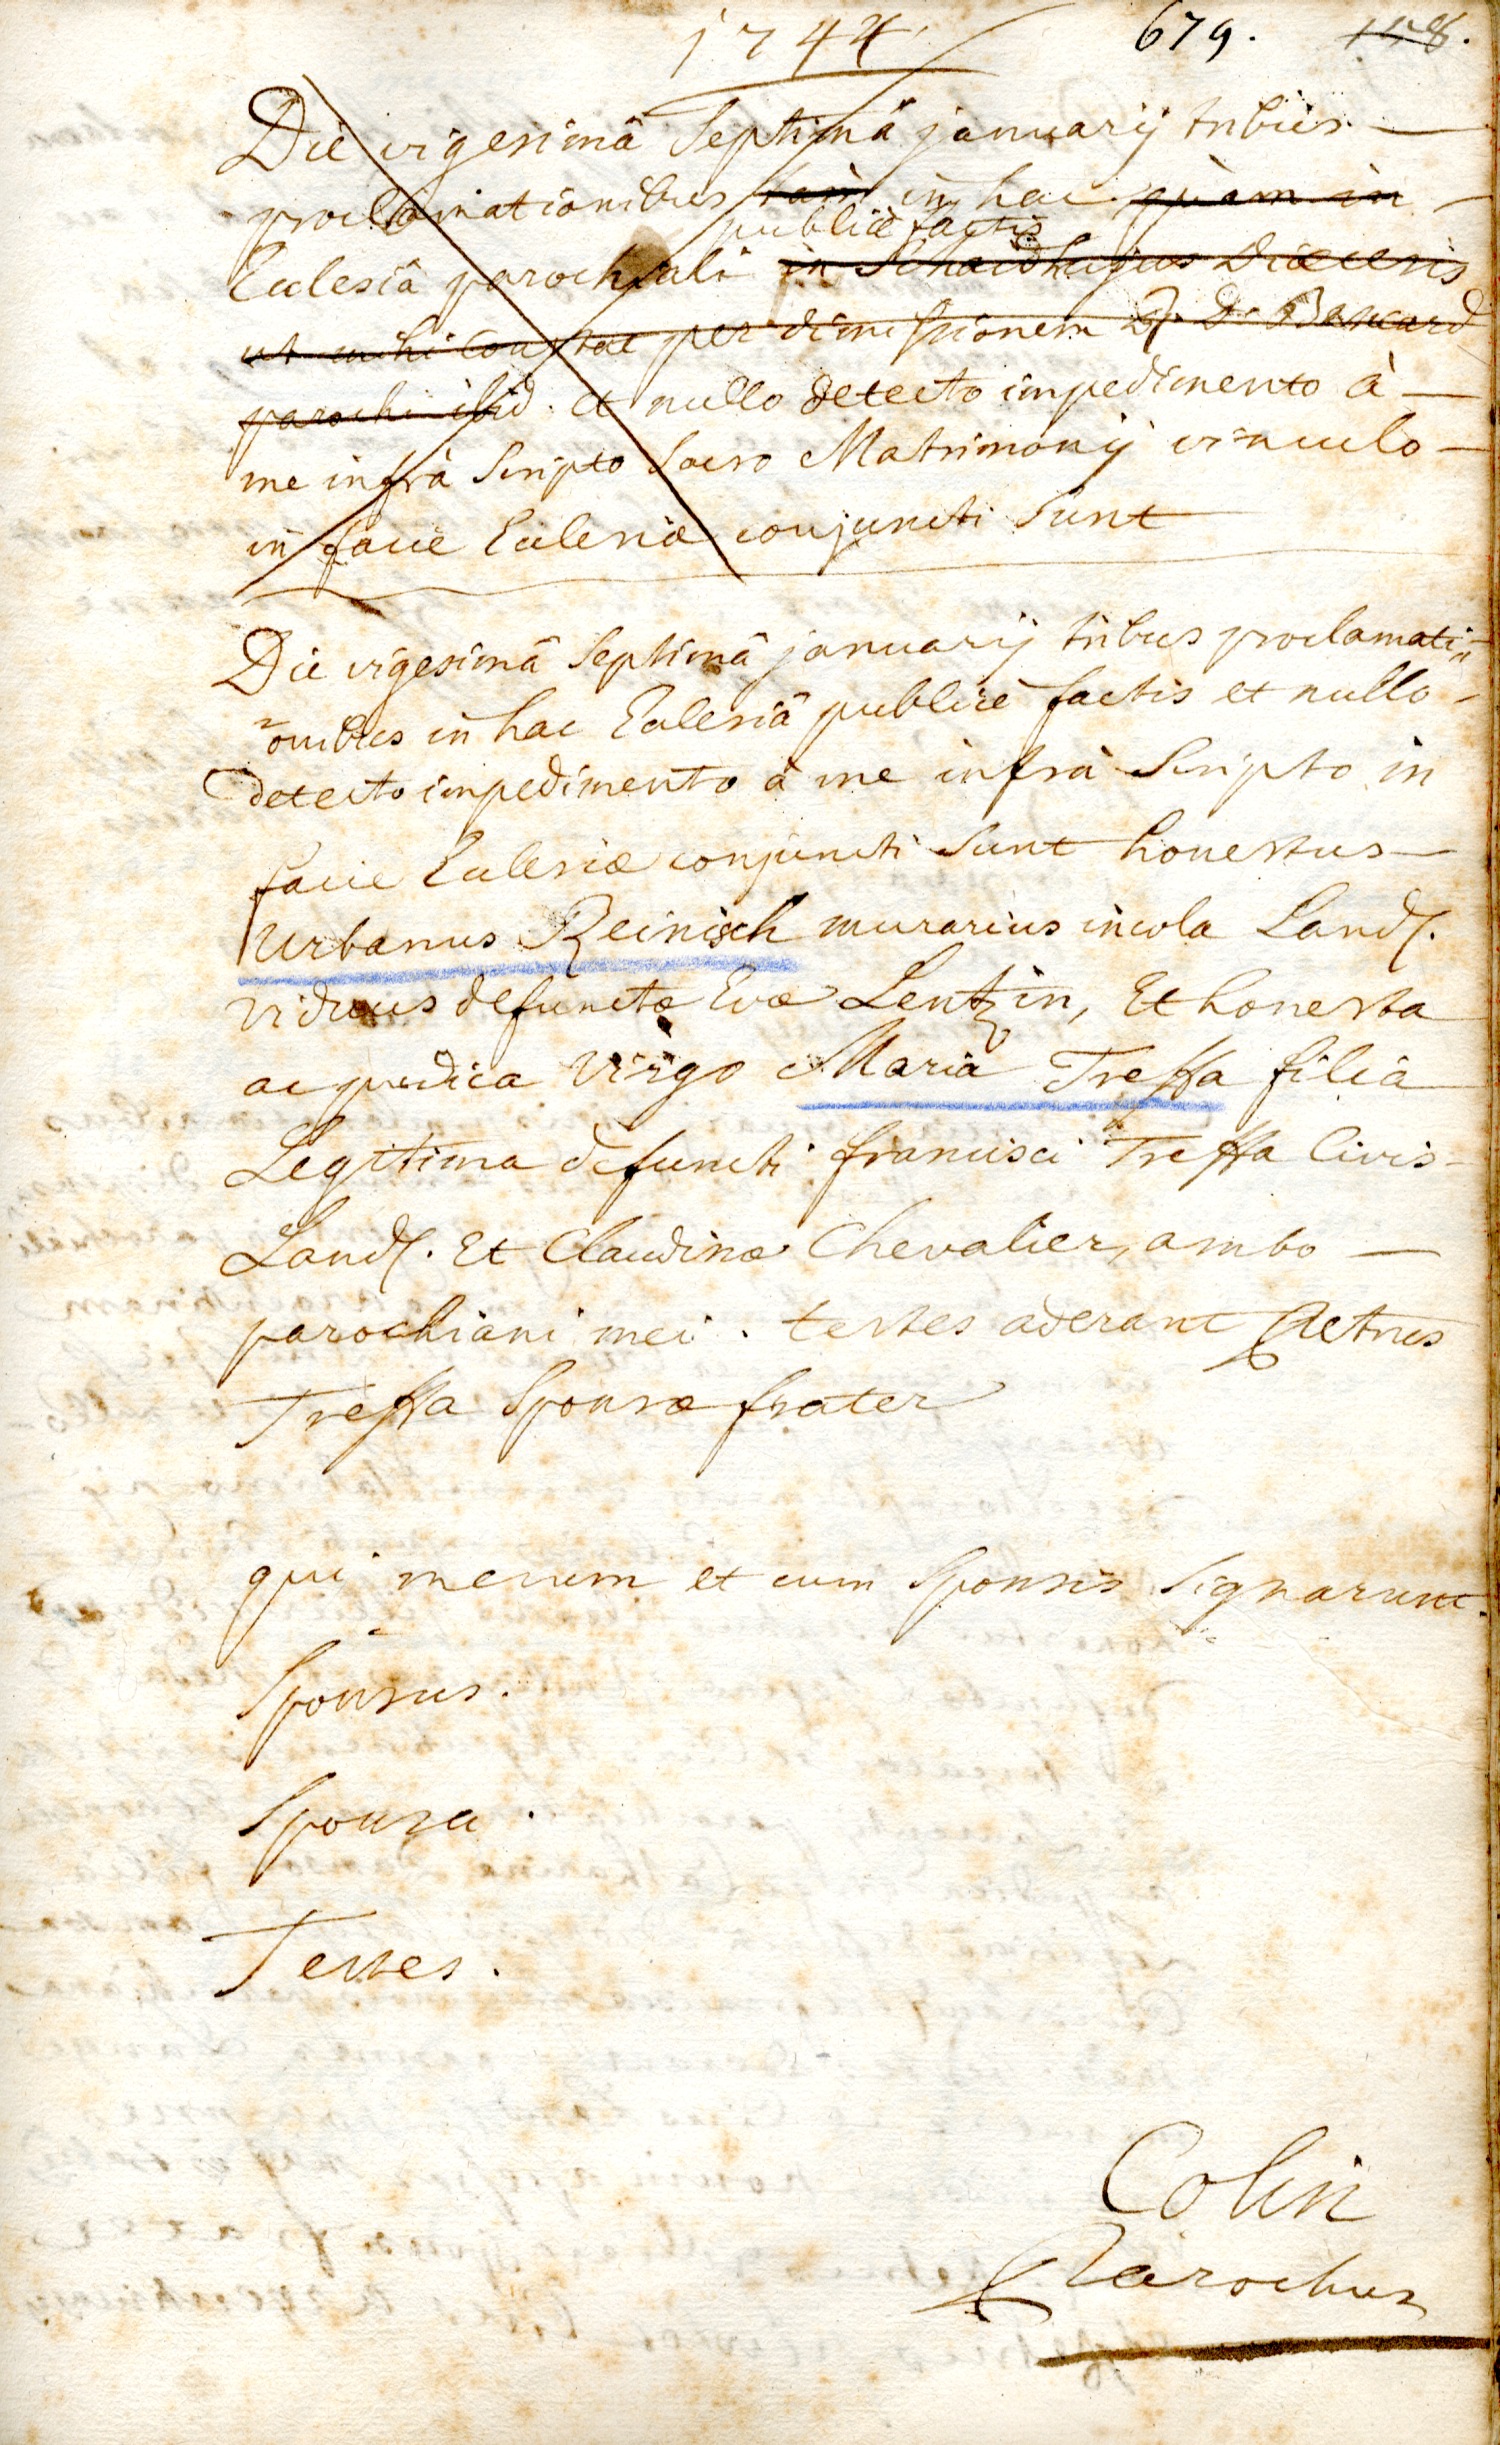 1744.
679. 158.
Die vigesimâ Septimâ januarij tribus
proclamationibus tam in hac quam in
publicè factis
Eclesiâ parochiali in Schaidt hujus Diæcesis
ut mihi constat per dimissionem D. Bencard
parochi ibid. et nullo detecto impedimento à
me infrà Scripto Sacro Matrimonij vinculo
in facie Eclesiæ conjuncti Sunt
Die vigesimâ Septimâ januarij tribus proclamati=
=onibus in hac Eclesiâ publicè factis et nullo
detecto impedimento à me infrà Scripto in
facie Eclesiæ conjuncti Sunt honestus
Urbanus Reinisch murarius incola Land.
viduus defunctæ Evæ Lentzin, Et honesta
ac pudica Virgo Maria Treffa filia
Legitima defuncti francisci Treffa Civis
Land. Et Claudinæ Chevalier, ambo
parochiani mei. testes aderant Petrus
Treffa Sponsæ frater
qui mecum et cum Sponsis Signarunt.
Sponsus.
Sponsa.
Testes.
Colin
Parochus